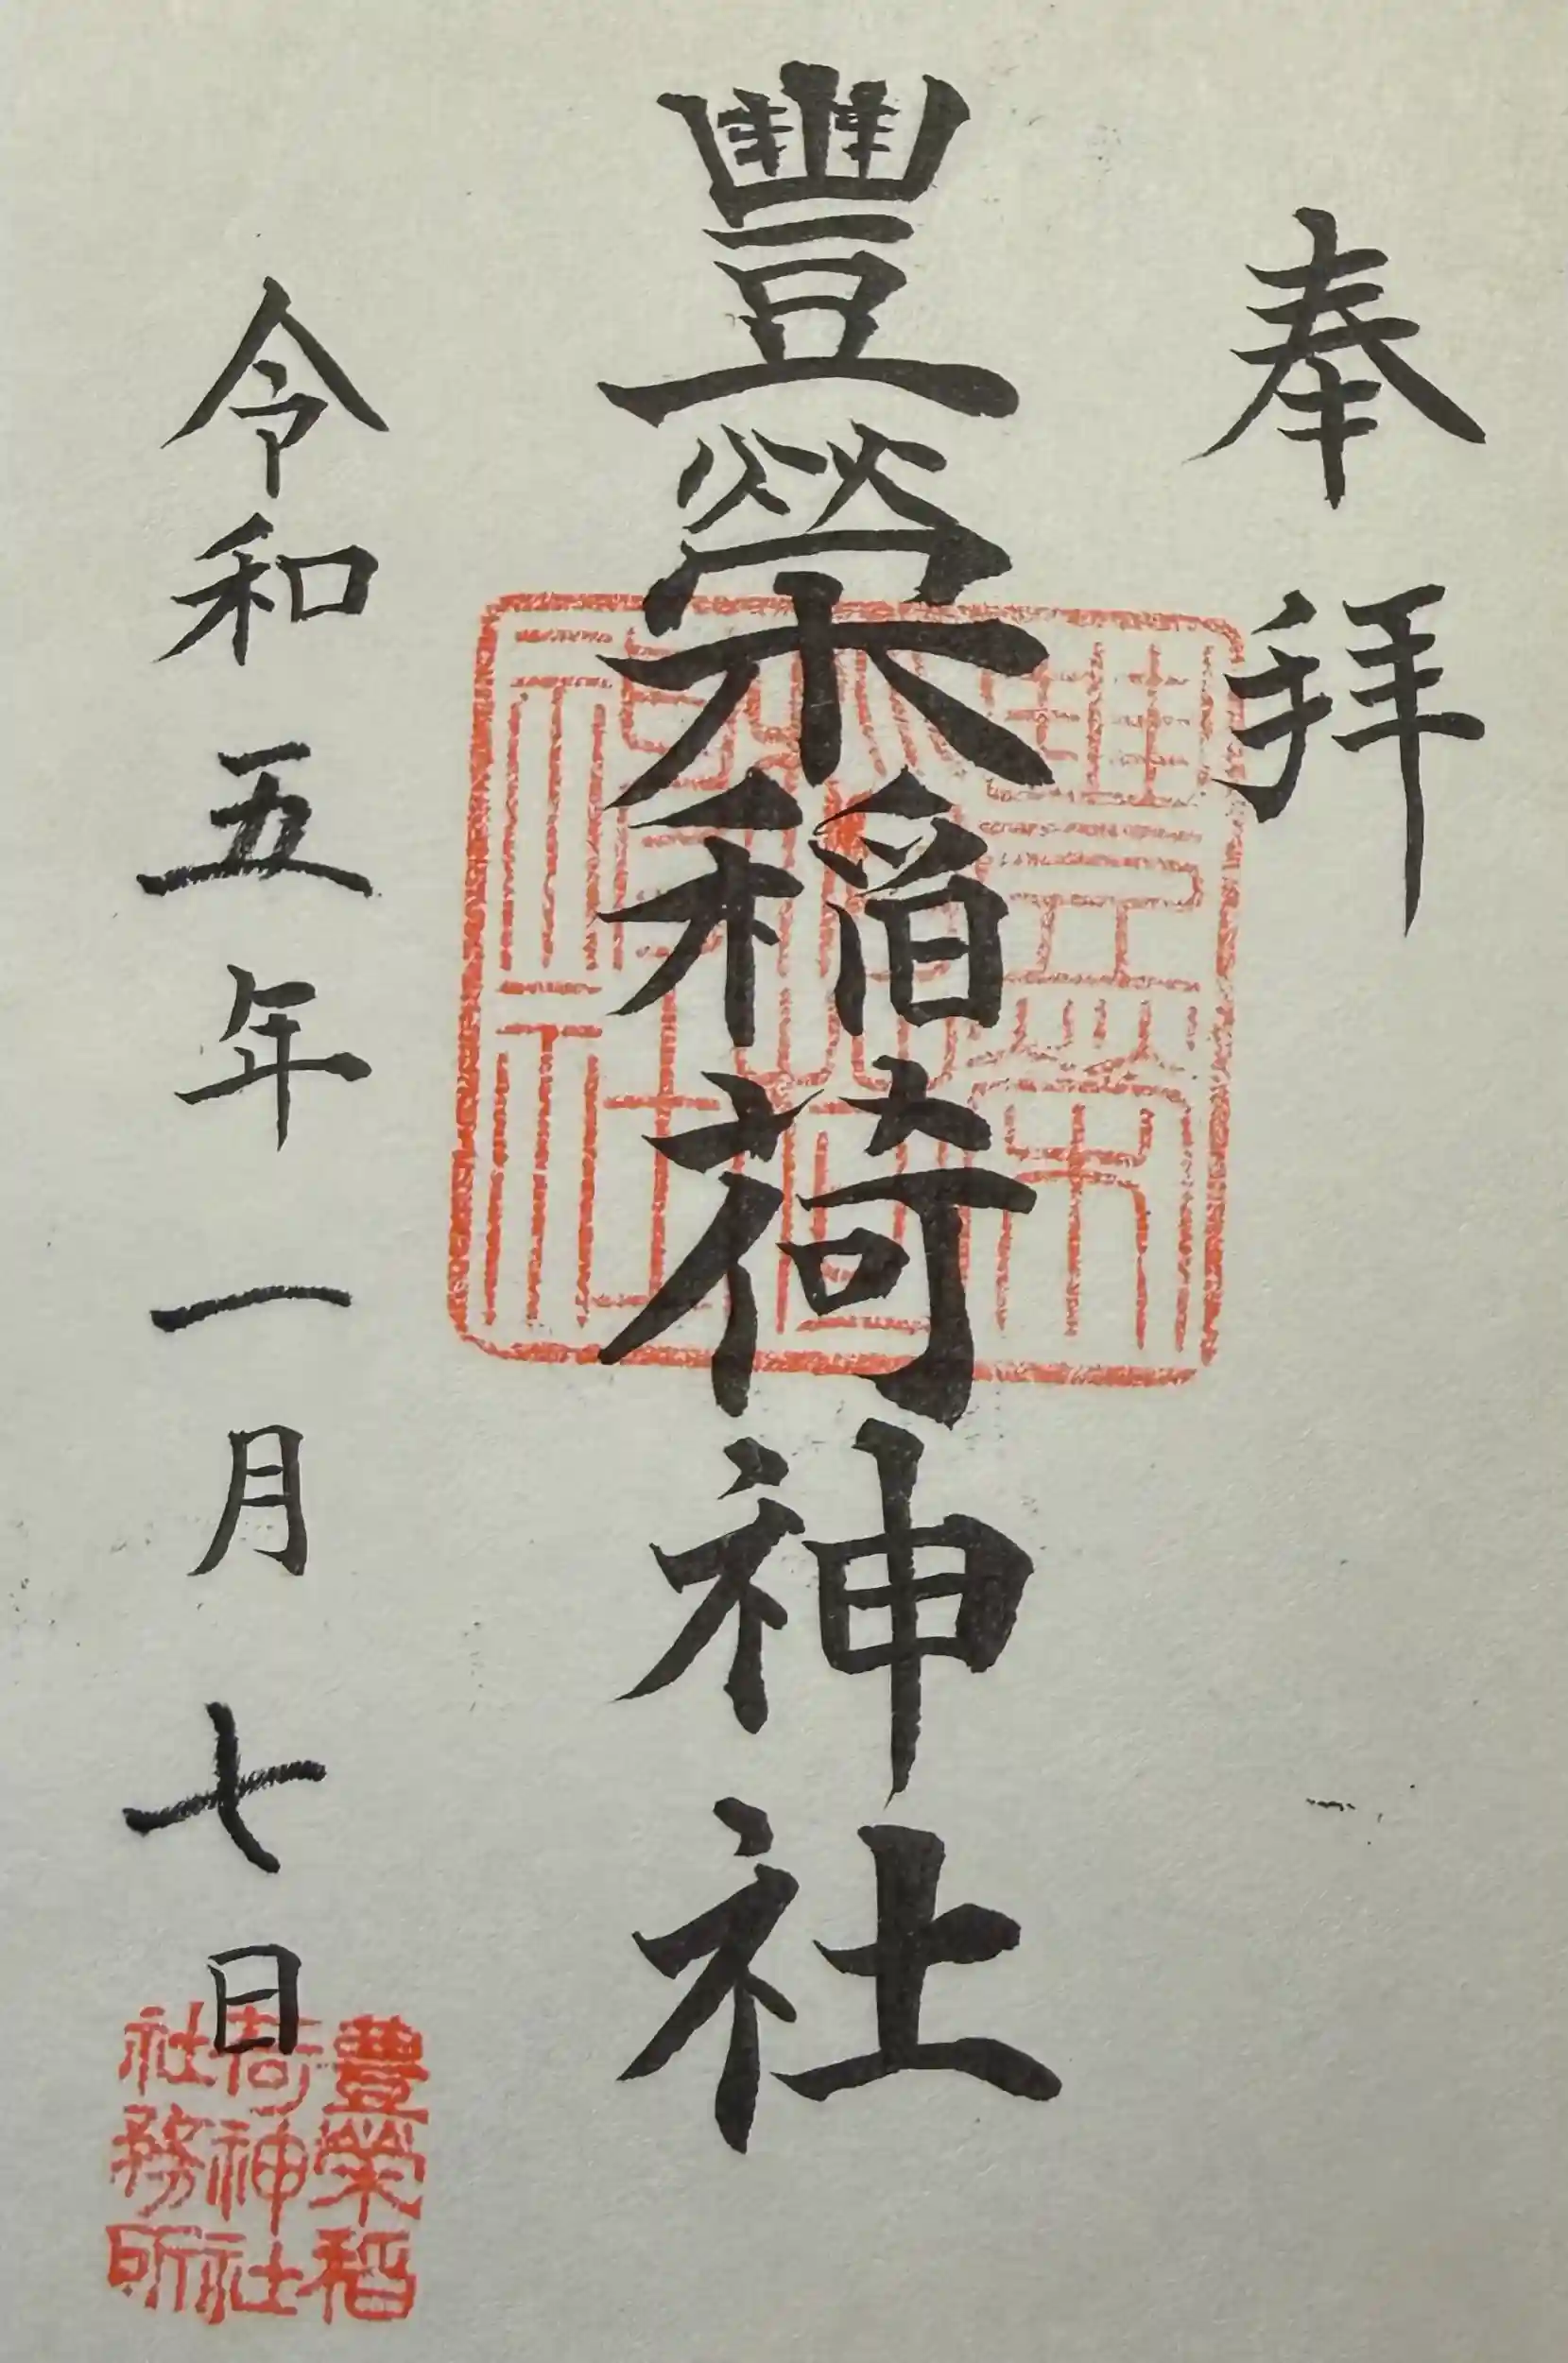 奉拝
豐榮稲荷神社
令和五年一月七日
豊榮稲
荷神社
社務所